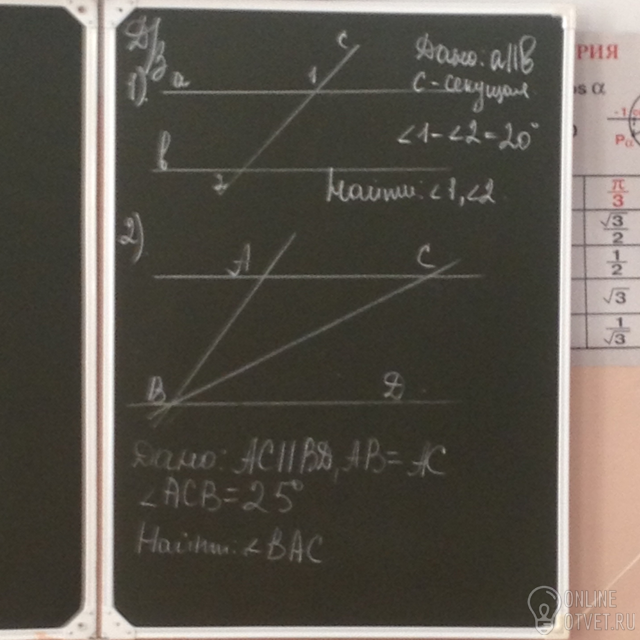 Д/З
1)
a
1
c
Дано: a||b
c-секущая
∠1-∠2=20°
b
2
Найти: ∠1, ∠2
2)
A
C
B
D
Дано: AC||BD, AB=AC
∠ACB=25°
Найти: ∠BAC
РИЯ
os α
π/3
√3/2
1/2
√3
1/√3
ONLINE
OTVET.RU